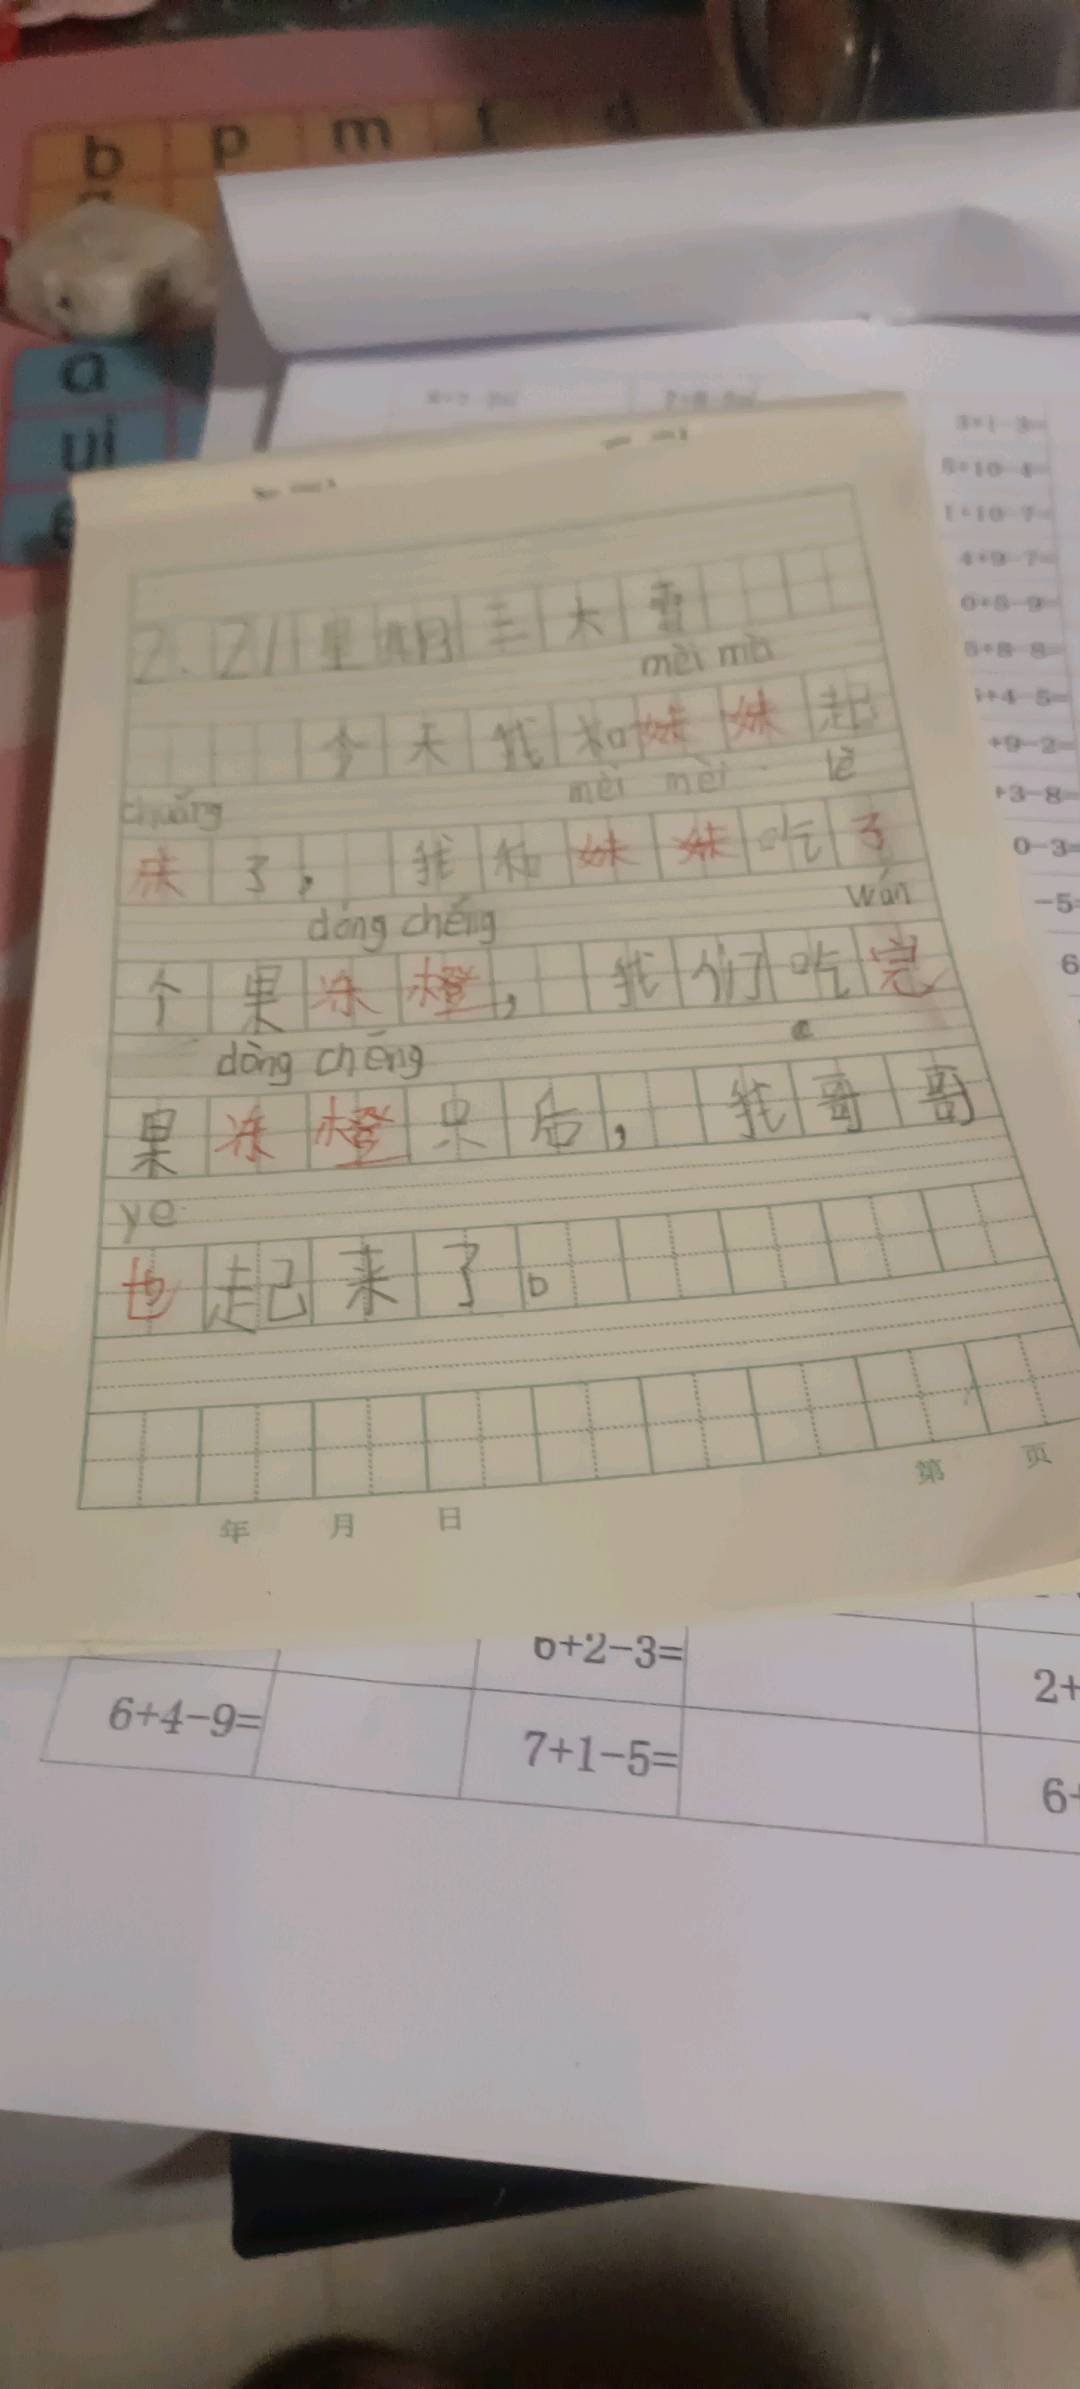 b p m
a
ui
3+1-3=
5+10-4=
1+10-7=
4+9-7=
6+5-9=
+4-5=
+9-2=
+3-8=
0-3=
-5=
6
2.21星期三大雪
mèi mà
今天我和妹妹起
chuáng mèi mèi lè
床了，我和妹妹吃了
dóng chéng wán
个果冻橙，我们吃完
dòng chéng
果冻橙只后，我哥哥
ye
也起来了。
年 月 日 第 页
6+2-3=
2+
6+4-9=
7+1-5=
6+